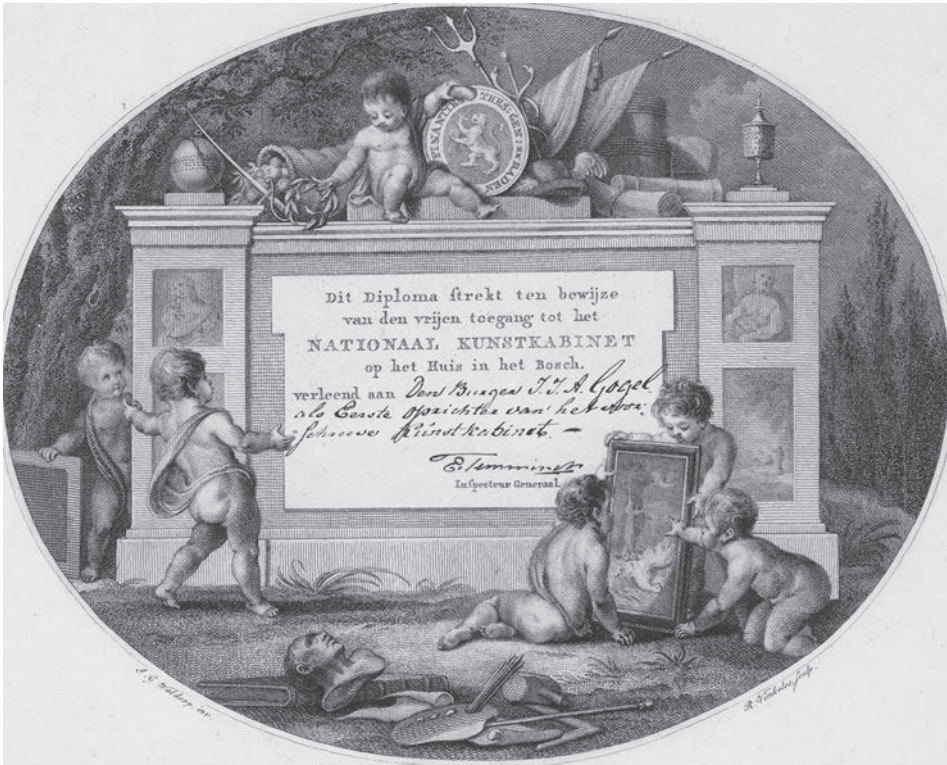 FINANCIEN THES: GEN: EN RADEN
Dit Diploma strekt ten bewijze
van den vrijen toegang tot het
NATIONAAL KUNSTKABINET
op het Huis in het Bosch.
verleend aan Den Burger I. J. A. Gogel
als Eerste oprichter van het voor.
schreve Kunstkabinet. —
E. Temminck
Inspecteur Generaal.
J. G. Waldorp inv.
R. Vinkeles, sculp.